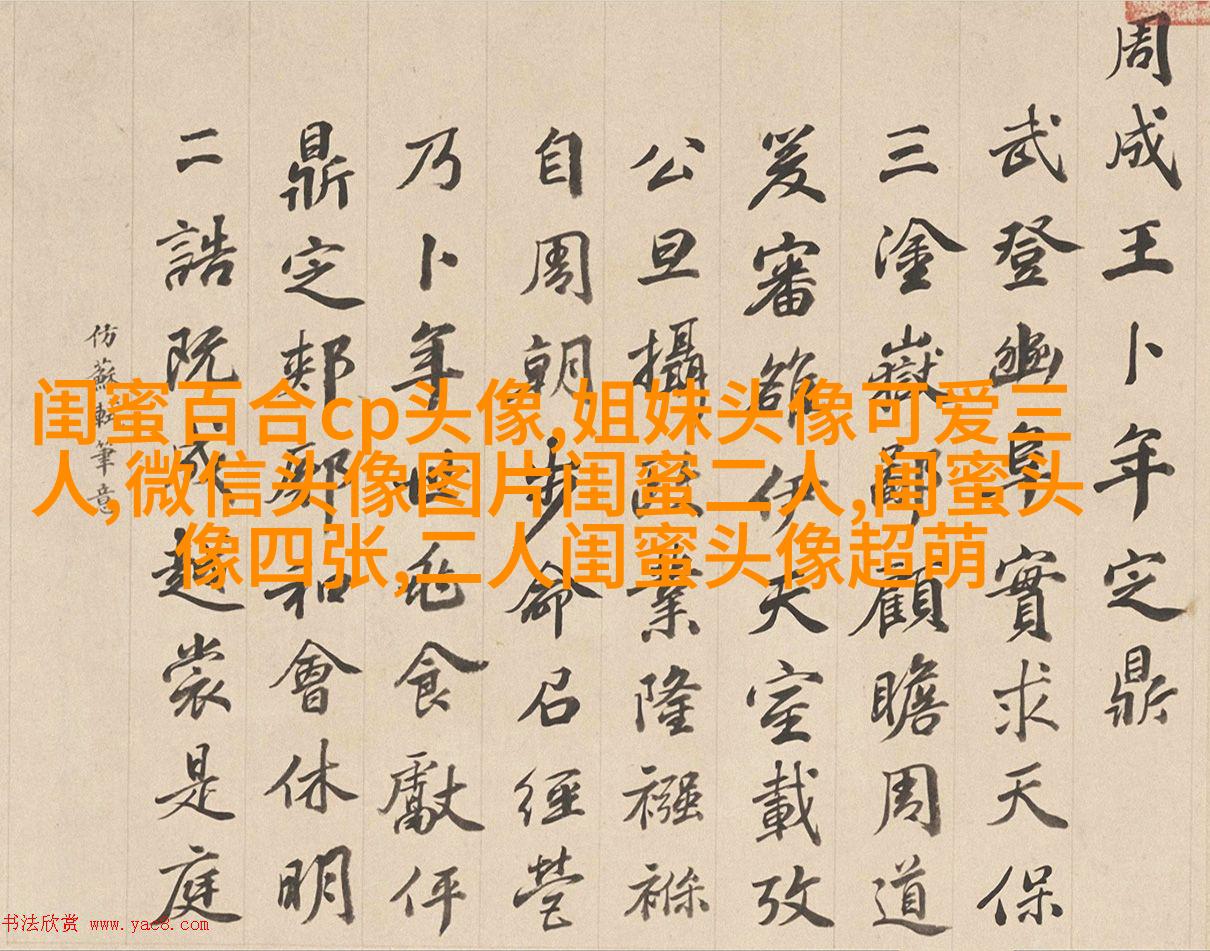 周成王卜年定鼎
武登豳阜實求天保
三塗嶽鄙顧瞻周道
爰審伊天室載攷
公旦攝業隆襁褓
自周朝步命召經營
乃卜年惟龜食獻伻
鼎定郟鄏和會休明
二誥既成越裳是庭
仿蘇軾筆意
闺蜜百合cp头像,姐妹头像可爱三
人,微信头像图片闺蜜二人,闺蜜头
像四张,二人闺蜜头像超萌
书法欣赏 www.yac8.com